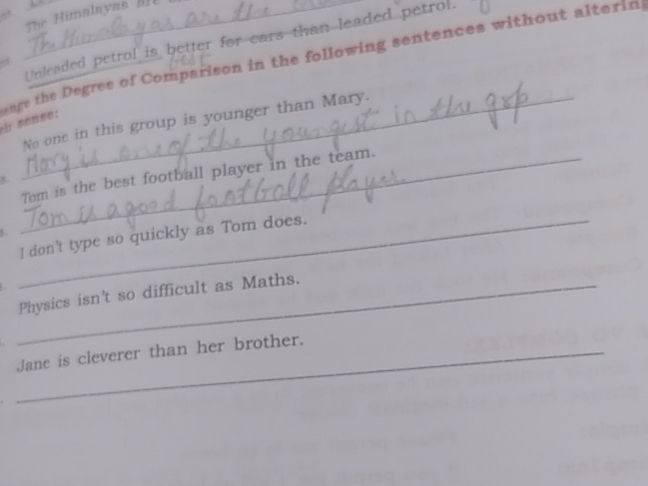 The Himalayas are
The Himalayas are the
Unleaded petrol is better for cars than leaded petrol.
best
ange the Degree of Comparison in the following sentences without altering
eir sense:
No one in this group is younger than Mary.
Mary is one of the youngest in the grp
Tom is the best football player in the team.
Tom is a good football player.
I don't type so quickly as Tom does.
Physics isn't so difficult as Maths.
Jane is cleverer than her brother.